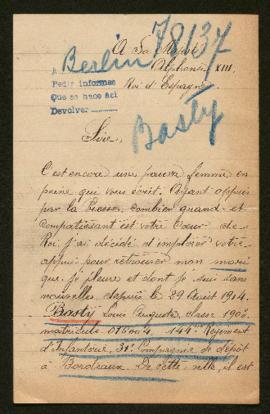 Berlin 78/37
A Sa Majesté
Alphonse XIII
Roi d'Espagne
Pedir informes
Que se hace aci
Devolver
Sire,
Basty
C'est encore une pauvre femme en
peine qui vous écrit. Ayant appris
par la Presse, combien grand et
compatissant est votre Cœur de
Roi, j'ai décidé d'implorer votre
appui pour retrouver mon mari
que je pleure et dont je suis sans
nouvelles depuis le 29 Août 1914.
Basty Louis Auguste classe
matricule 016004 144e Régiment
d'Infanterie, 31e Compagnie de dépôt
à Bordeaux. De cette ville, il est